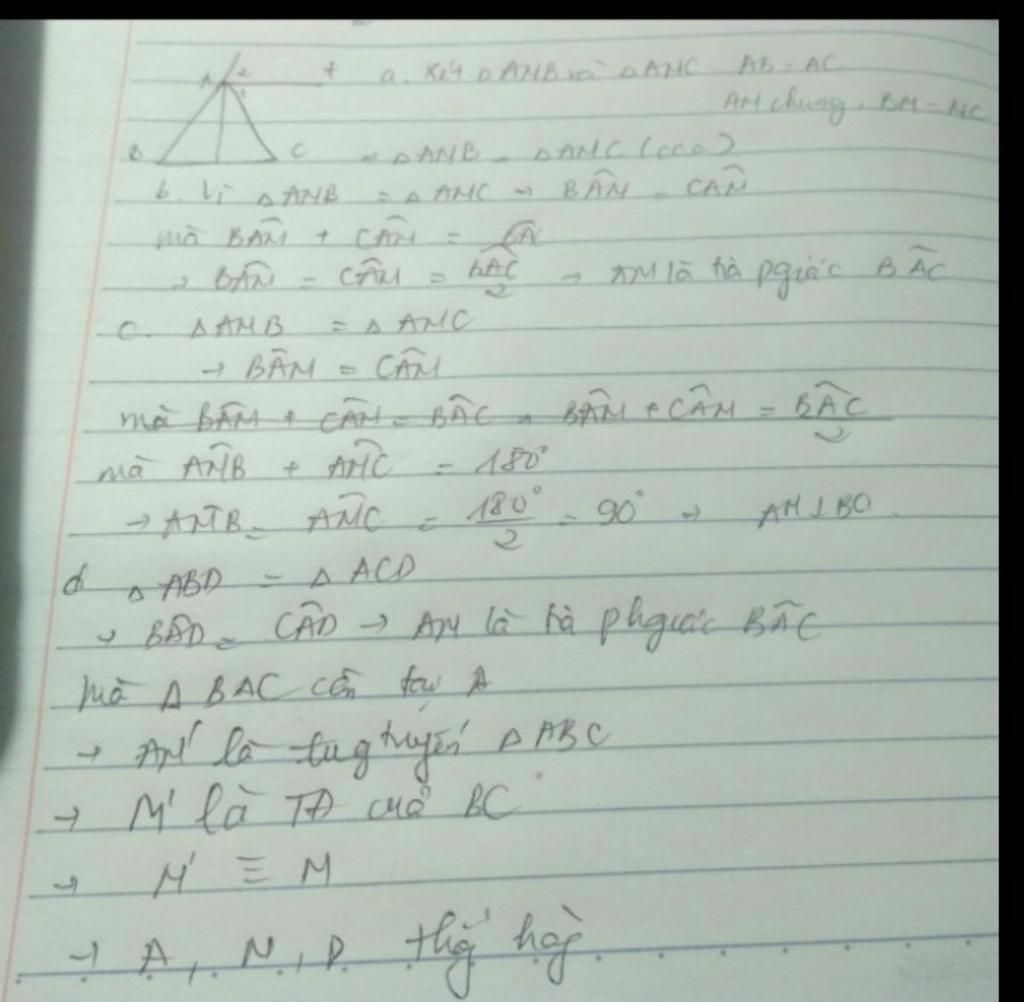 A 2 t a. Xét △AMB và △AMC AB = AC
AM chung, BM = MC
B C → △AMB = △AMC (ccc)
b. Vì △AMB = △AMC → BÂM = CÂM
mà BÂM + CÂM =
→ BÂM = CÂM = BÂC/2 → AM là tia pgiác BÂC
c. △AMB = △AMC
→ BÂM = CÂM
mà BÂM + CÂM = BÂC → BÂM + CÂM = BÂC/2
mà AM̂B + AM̂C = 180°
→ AM̂B = AM̂C = 180°/2 = 90° → AM⊥BC
d △ABD = △ACD
→ BÂD = CÂD → AM là tia phgiác BÂC
mà △BAC cân tại A
→ AM' là tug tuyến △ABC
→ M' là TĐ của BC
→ M' ≡ M
→ A, M, D thẳg hàg